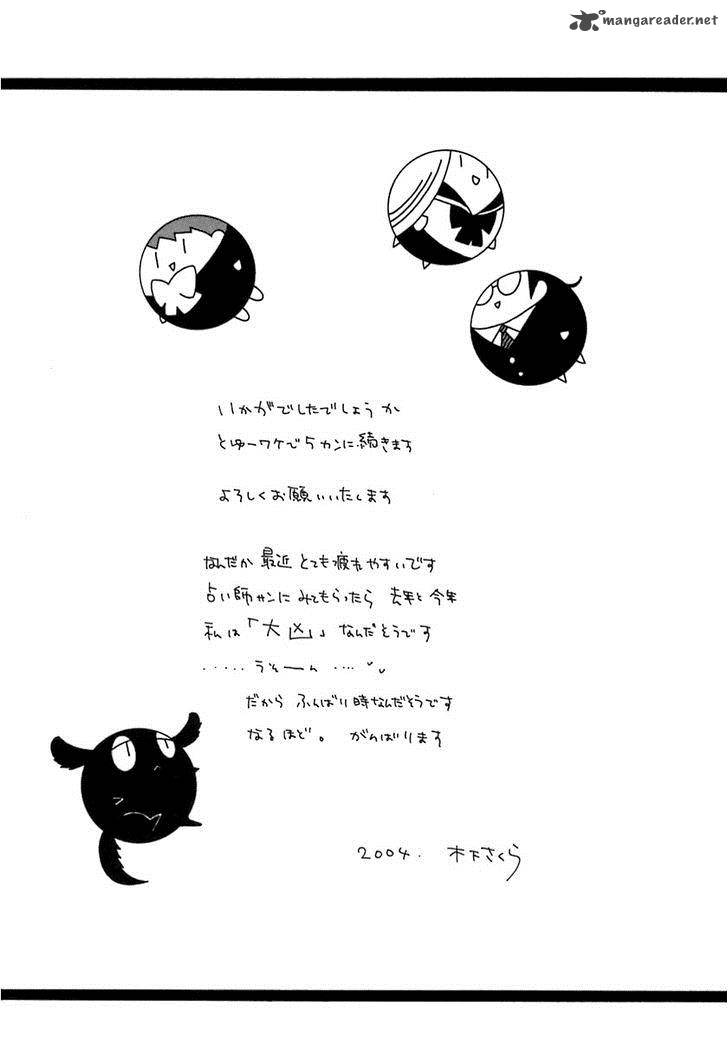 mangareader.net
いかがでしたでしょうか
とゆーワケで5カンに続きます
よろしくお願いいたします
なんだか最近とても疲れやすいです
占い師サンにみてもらったら 去年と今年
私は「大凶」なんだそうです
‥‥‥うそーん‥‥
だから ふんばり時なんだそうです
なるほど。 がんばります
2004. 木下さくら